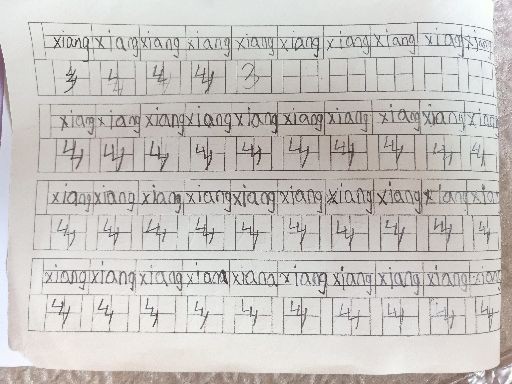 xiang xiang xiang xiang xiang xiang xiang xiang xiang xiang
乡 乡 乡 乡 3
xiang xiang xiang xiang xiang xiang xiang xiang xiang xiang
乡 乡 乡 乡 乡 乡 乡 乡 乡 乡
xiang xiang xiang xiang xiang xiang xiang xiang xiang xian
乡 乡 乡 乡 乡 乡 乡 乡 乡 乡
xiang xiang xiang xiang xiang xiang xiang xiang xiang xiang
乡 乡 乡 乡 乡 乡 乡 乡 乡 乡